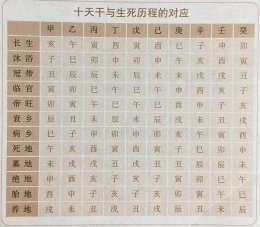 十天干与生死历程的对应
甲 乙 丙 丁 戊 己 庚 辛 壬 癸
长生 亥 午 寅 酉 寅 酉 巳 子 申 卯
沐浴 子 巳 卯 申 卯 申 午 亥 酉 寅
冠带 丑 辰 辰 未 辰 未 未 戌 戌 丑
临官 寅 卯 巳 午 巳 午 申 酉 亥 子
帝旺 卯 寅 午 巳 午 巳 酉 申 子 亥
衰乡 辰 丑 未 辰 未 辰 戌 未 丑 戌
病乡 巳 子 申 卯 申 卯 亥 午 寅 酉
死地 午 亥 酉 寅 酉 寅 子 巳 卯 申
墓地 未 戌 戌 丑 戌 丑 丑 辰 辰 未
绝地 申 酉 亥 子 亥 子 寅 卯 巳 午
胎地 酉 申 子 亥 子 亥 卯 寅 午 巳
养地 戌 未 丑 戌 丑 戌 辰 丑 未 辰